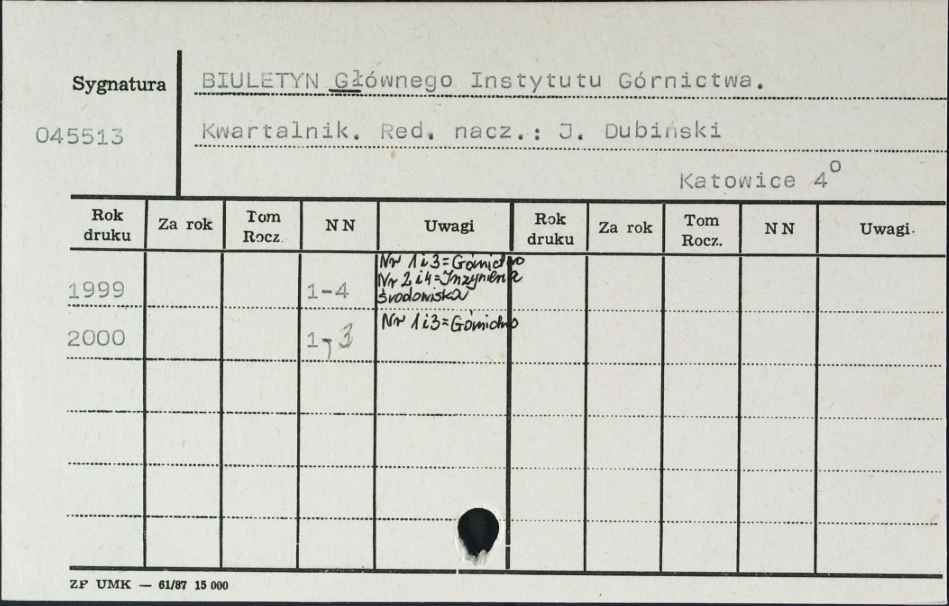 Sygnatura
BIULETYN Głównego Instytutu Górnictwa.
045513
Kwartalnik. Red. nacz.: J. Dubiński
Katowice 4o
Rok druku Za rok Tom Rocz. NN Uwagi Rok druku Za rok Tom Rocz. NN Uwagi.
Nr 1 i 3 = Górnictwo
Nr 2 i 4 = Inżynieria
środowiska
1999 1-4
Nr 1 i 3 = Górnictwo
2000 1, 3
ZF UMK — 61/87 15 000